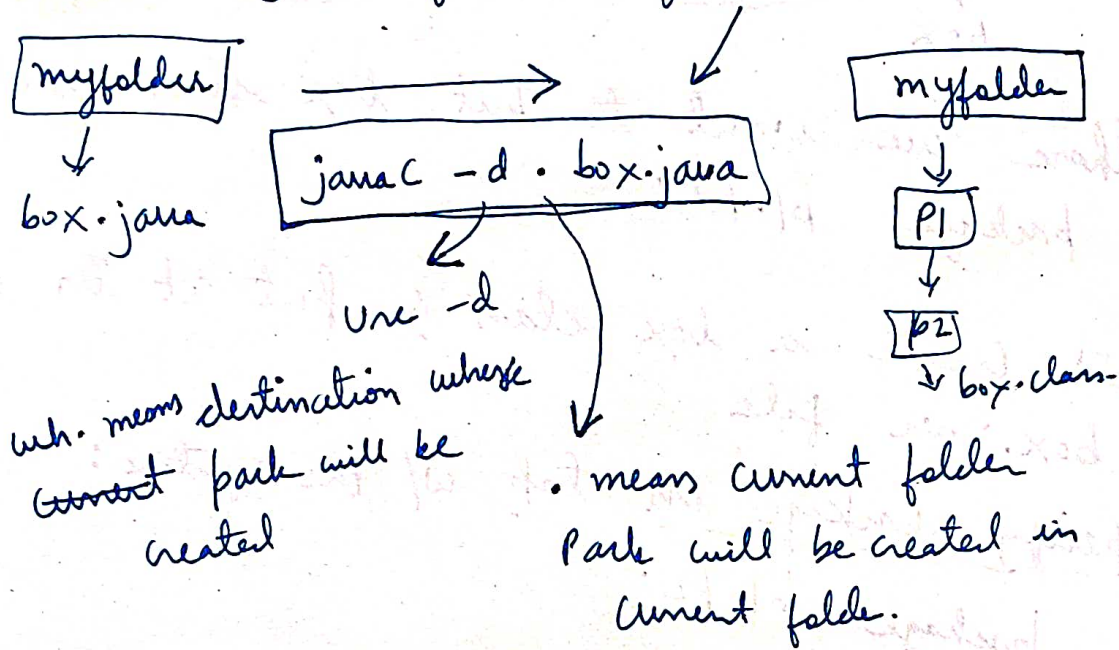 myfolder
box.java
javac -d . box.java
Use -d
wh. means destination where
current pack will be
created
. means current folder
Pack will be created in
current folde.
myfolder
P1
p2
box.class